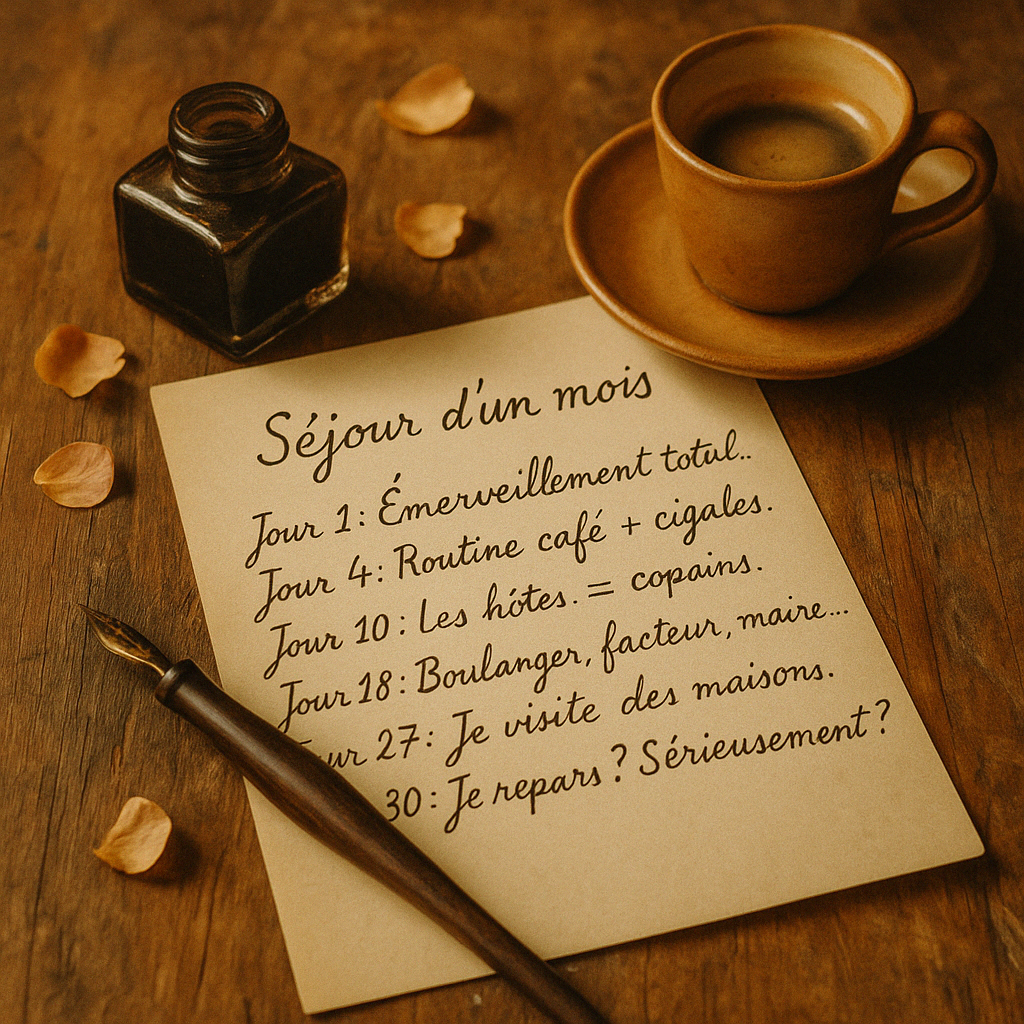 Séjour d'un mois
Jour 1: Émerveillement totul..
Jour 4: Routine café + cigales.
Jour 10: Les hótes. = copains.
Jour 18: Boulanger, facteur, maire...
ur 27: Je visite des maisons.
30: Je repars? Sérieusement?